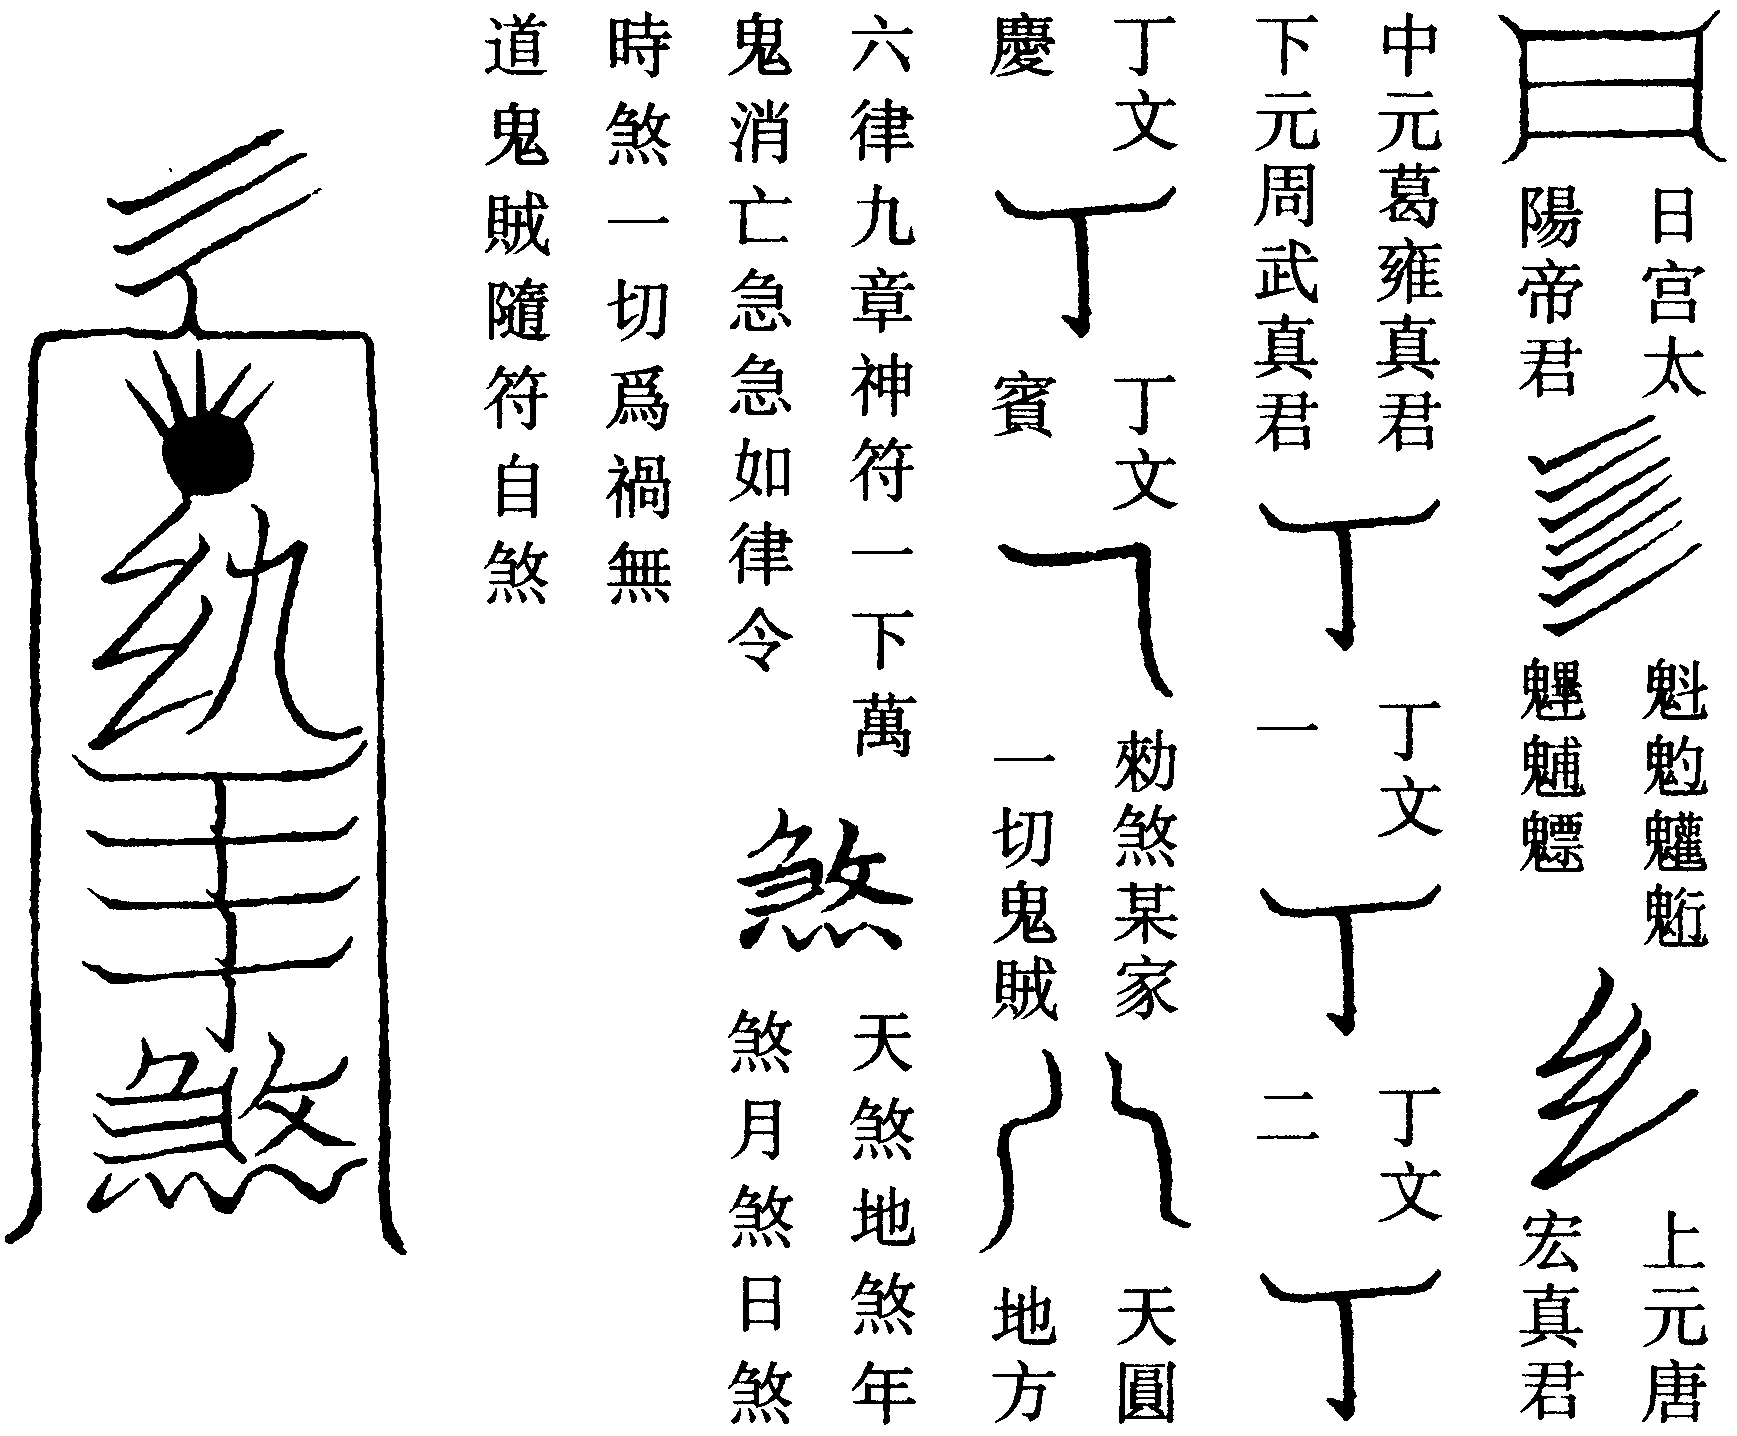 日宮太
陽帝君
魁𩲃𩵄𩲴
魓𩳐魒
上元唐
宏真君
中元葛雍真君
下元周武真君
丁文
一
丁文
二
丁文
慶
丁文
賓
勑煞某家
一切鬼賊
天圓
地方
六律九章神符一下萬
鬼消亡急急如律令
煞
天煞地煞年
煞月煞日煞
時煞一切爲禍無
道鬼賊隨符自煞